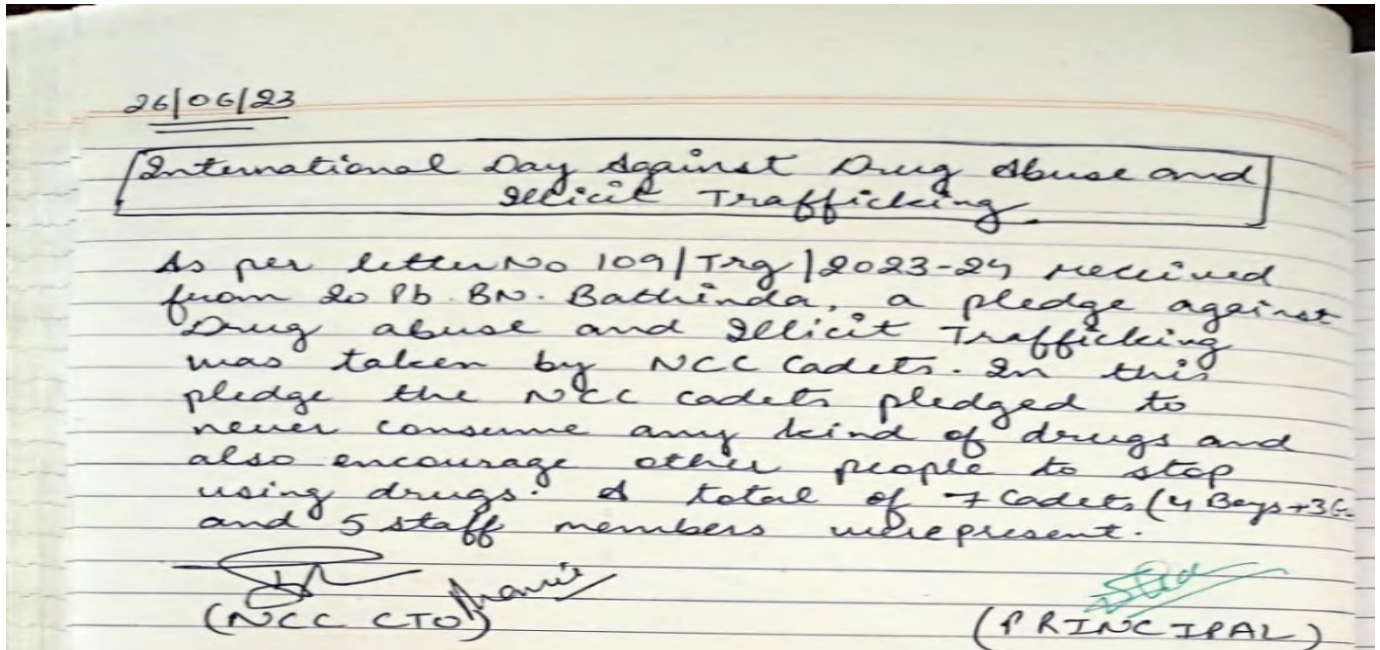 26/06/23
International Day Against Drug Abuse and
Illicit Trafficking.
As per letter No 109/Trg/2023-24 received
from 20 Pb. BN. Bathinda, a pledge against
Drug abuse and Illicit Trafficking
was taken by NCC Cadets. In this
pledge the NCC cadets pledged to
never consume any kind of drugs and
also encourage other people to stop
using drugs. A total of 7 Cadets (4 Boys+3G
and 5 staff members were present.
(NCC CTO)
(PRINCIPAL)